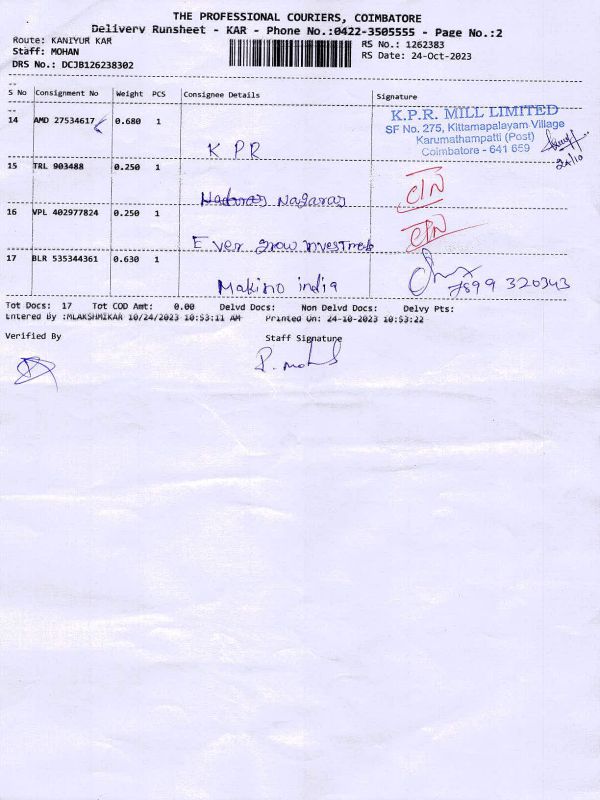 THE PROFESSIONAL COURIERS, COIMBATORE
Delivery Runsheet - KAR - Phone No.:0422-3505555 - Page No.:2
Route: KANIYUR KAR
RS No.: 1262383
Staff: MOHAN
RS Date: 24-Oct-2023
DRS No.: DCJB126238302
S No Consignment No Weight PCS Consignee Details Signature
14 AMD 27534617 0.680 1
K P R
K.P.R. MILL LIMITED
SF No. 275, Kittamapalayam Village
Karumathampatti (Post)
Coimbatore - 641 659
24/10
15 TRL 903488 0.250 1
Nagaraj
16 VPL 402977824 0.250 1
Ever grow investmets
17 BLR 535344361 0.630 1
Makino india
7899 320343
Tot Docs: 17 Tot COD Amt: 0.00 Delvd Docs: Non Delvd Docs: Delvy Pts:
Entered By :MLAKSHMIKAR 10/24/2023 10:53:11 AM Printed On: 24-10-2023 10:53:22
Verified By Staff Signature
P. Mohan